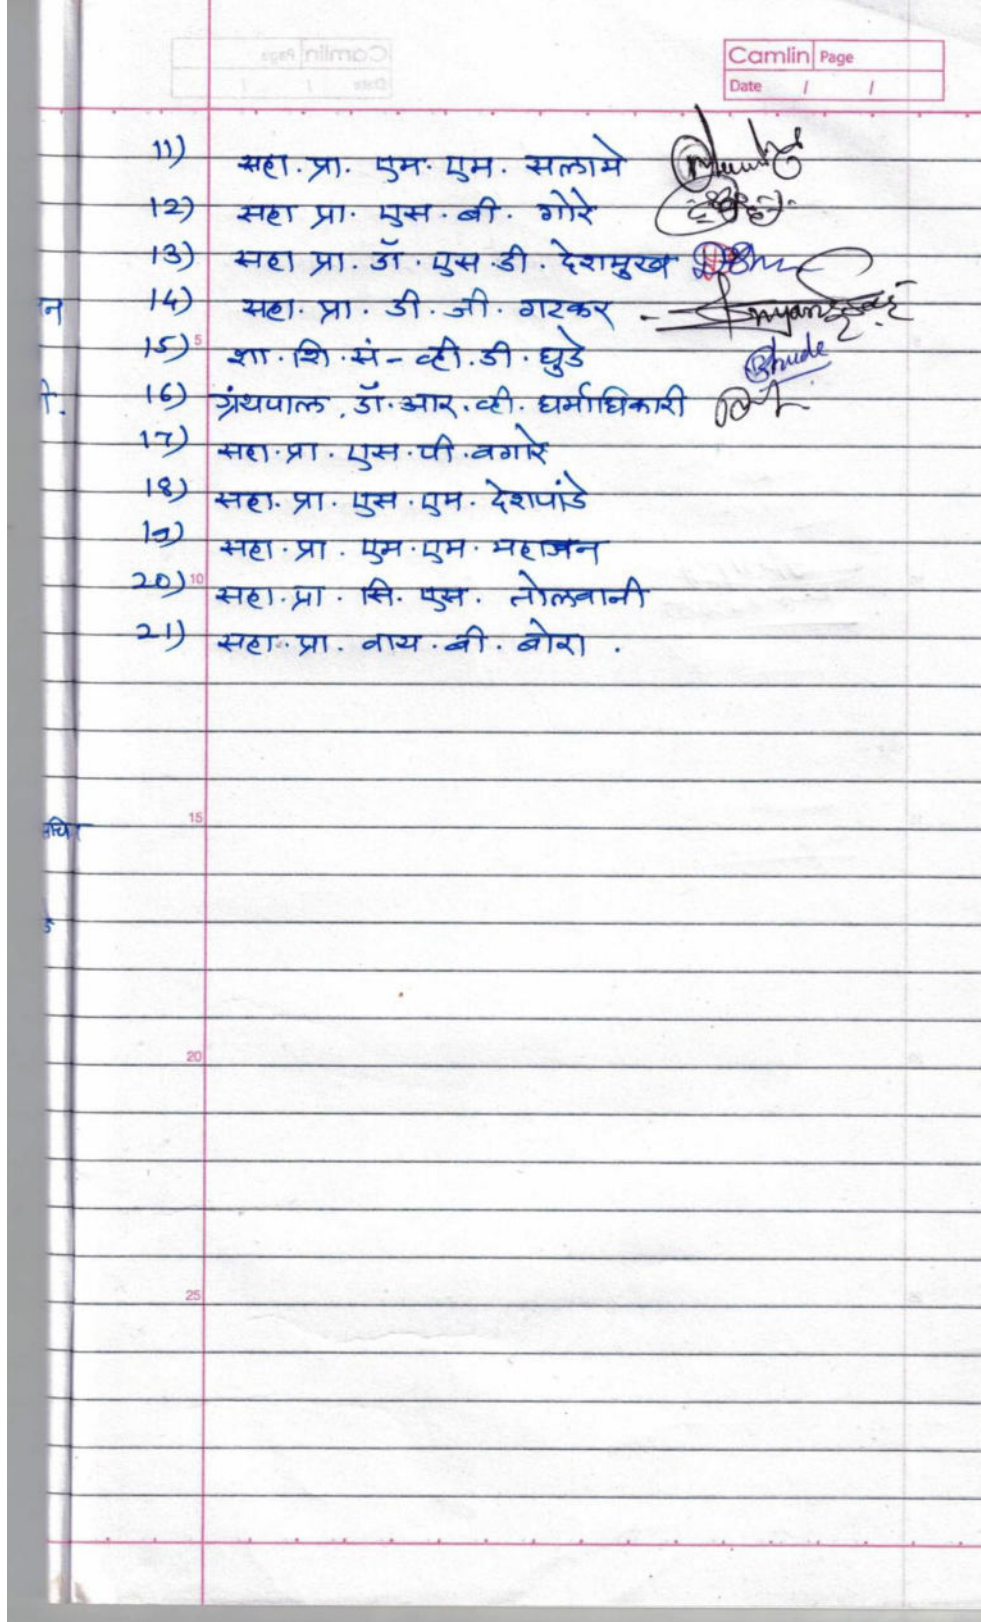 Camlin Page
Date / /
11) सहा. प्रा. एम. एम. सलामे
12) सहा प्रा. एस. बी. गोरे
13) सहा प्रा. डॉ. एस. डी. देशमुख
14) सहा. प्रा. डी. जी. गटकर
15) शा. शि. सं - व्ही. डी. घुडे Ghude
16) ग्रंथपाल. डॉ. आर. व्ही. धर्माधिकारी
17) सहा. प्रा. एस. पी. वगारे
18) सहा. प्रा. एस. एम. देशपांडे
19) सहा. प्रा. एम. एम. महाजन
20) सहा. प्रा. सि. एस. तोलवानी
21) सहा. प्रा. वाय. बी. बोरा.
5
10
15
20
25